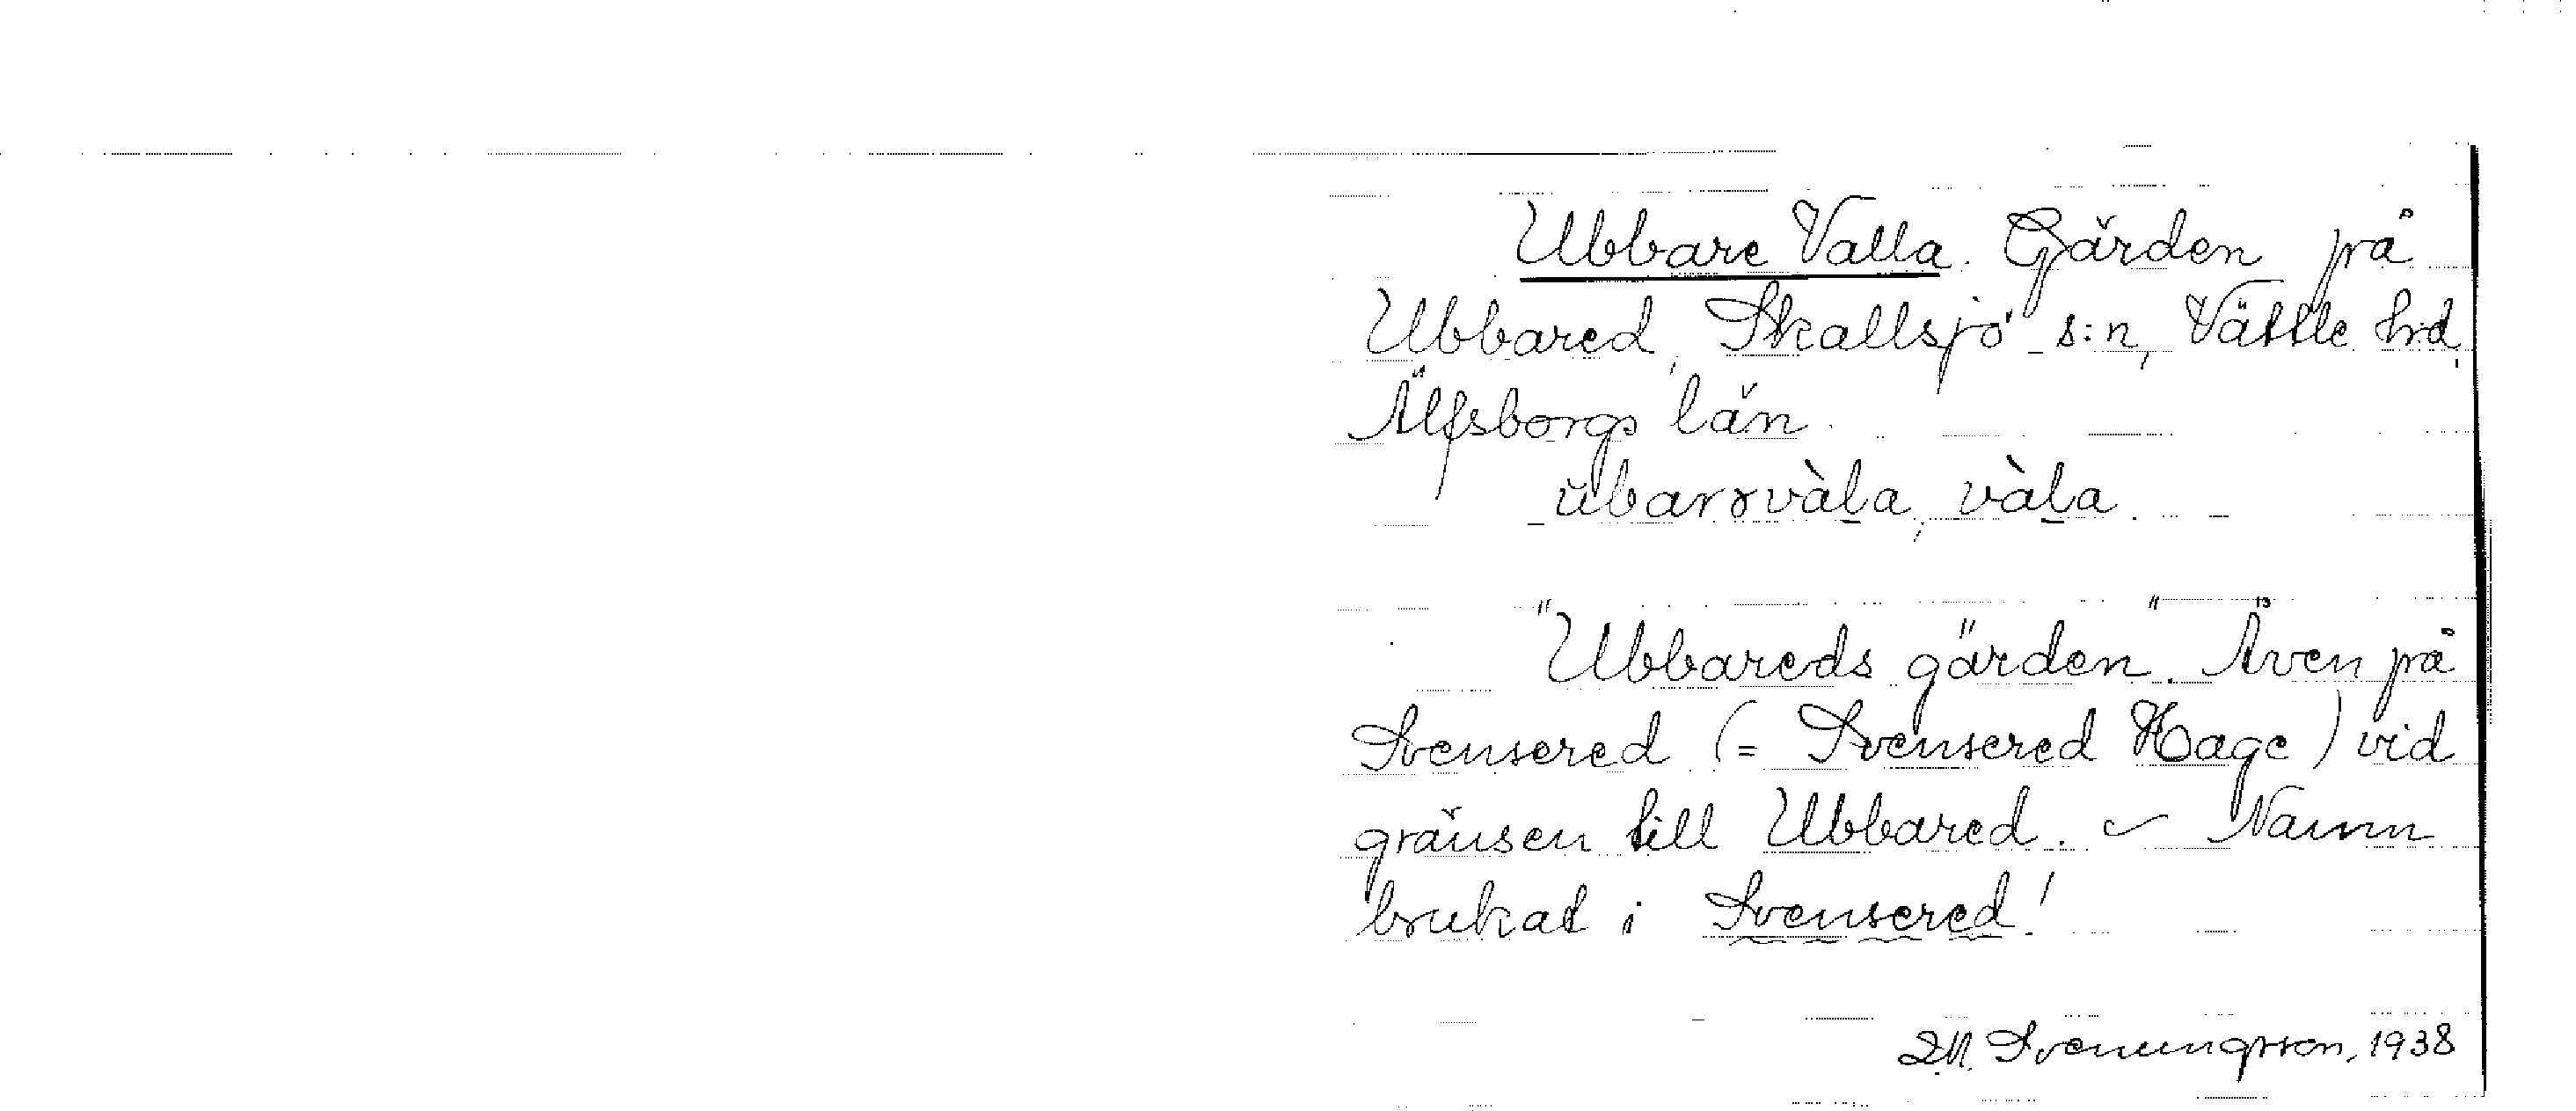 Ubbare Valla. Gärden på
Ubbared, Skallsjö s:n, Vättle hrd,
Älfsborgs län.
ŭbarɤvàla, vàla.
"Ubbareds gärden". Även på
Svensered (= Svensered Hage) vid
gränsen till Ubbared. ~ Namn
brukat i Svensered!
M. Svenungsson, 1938